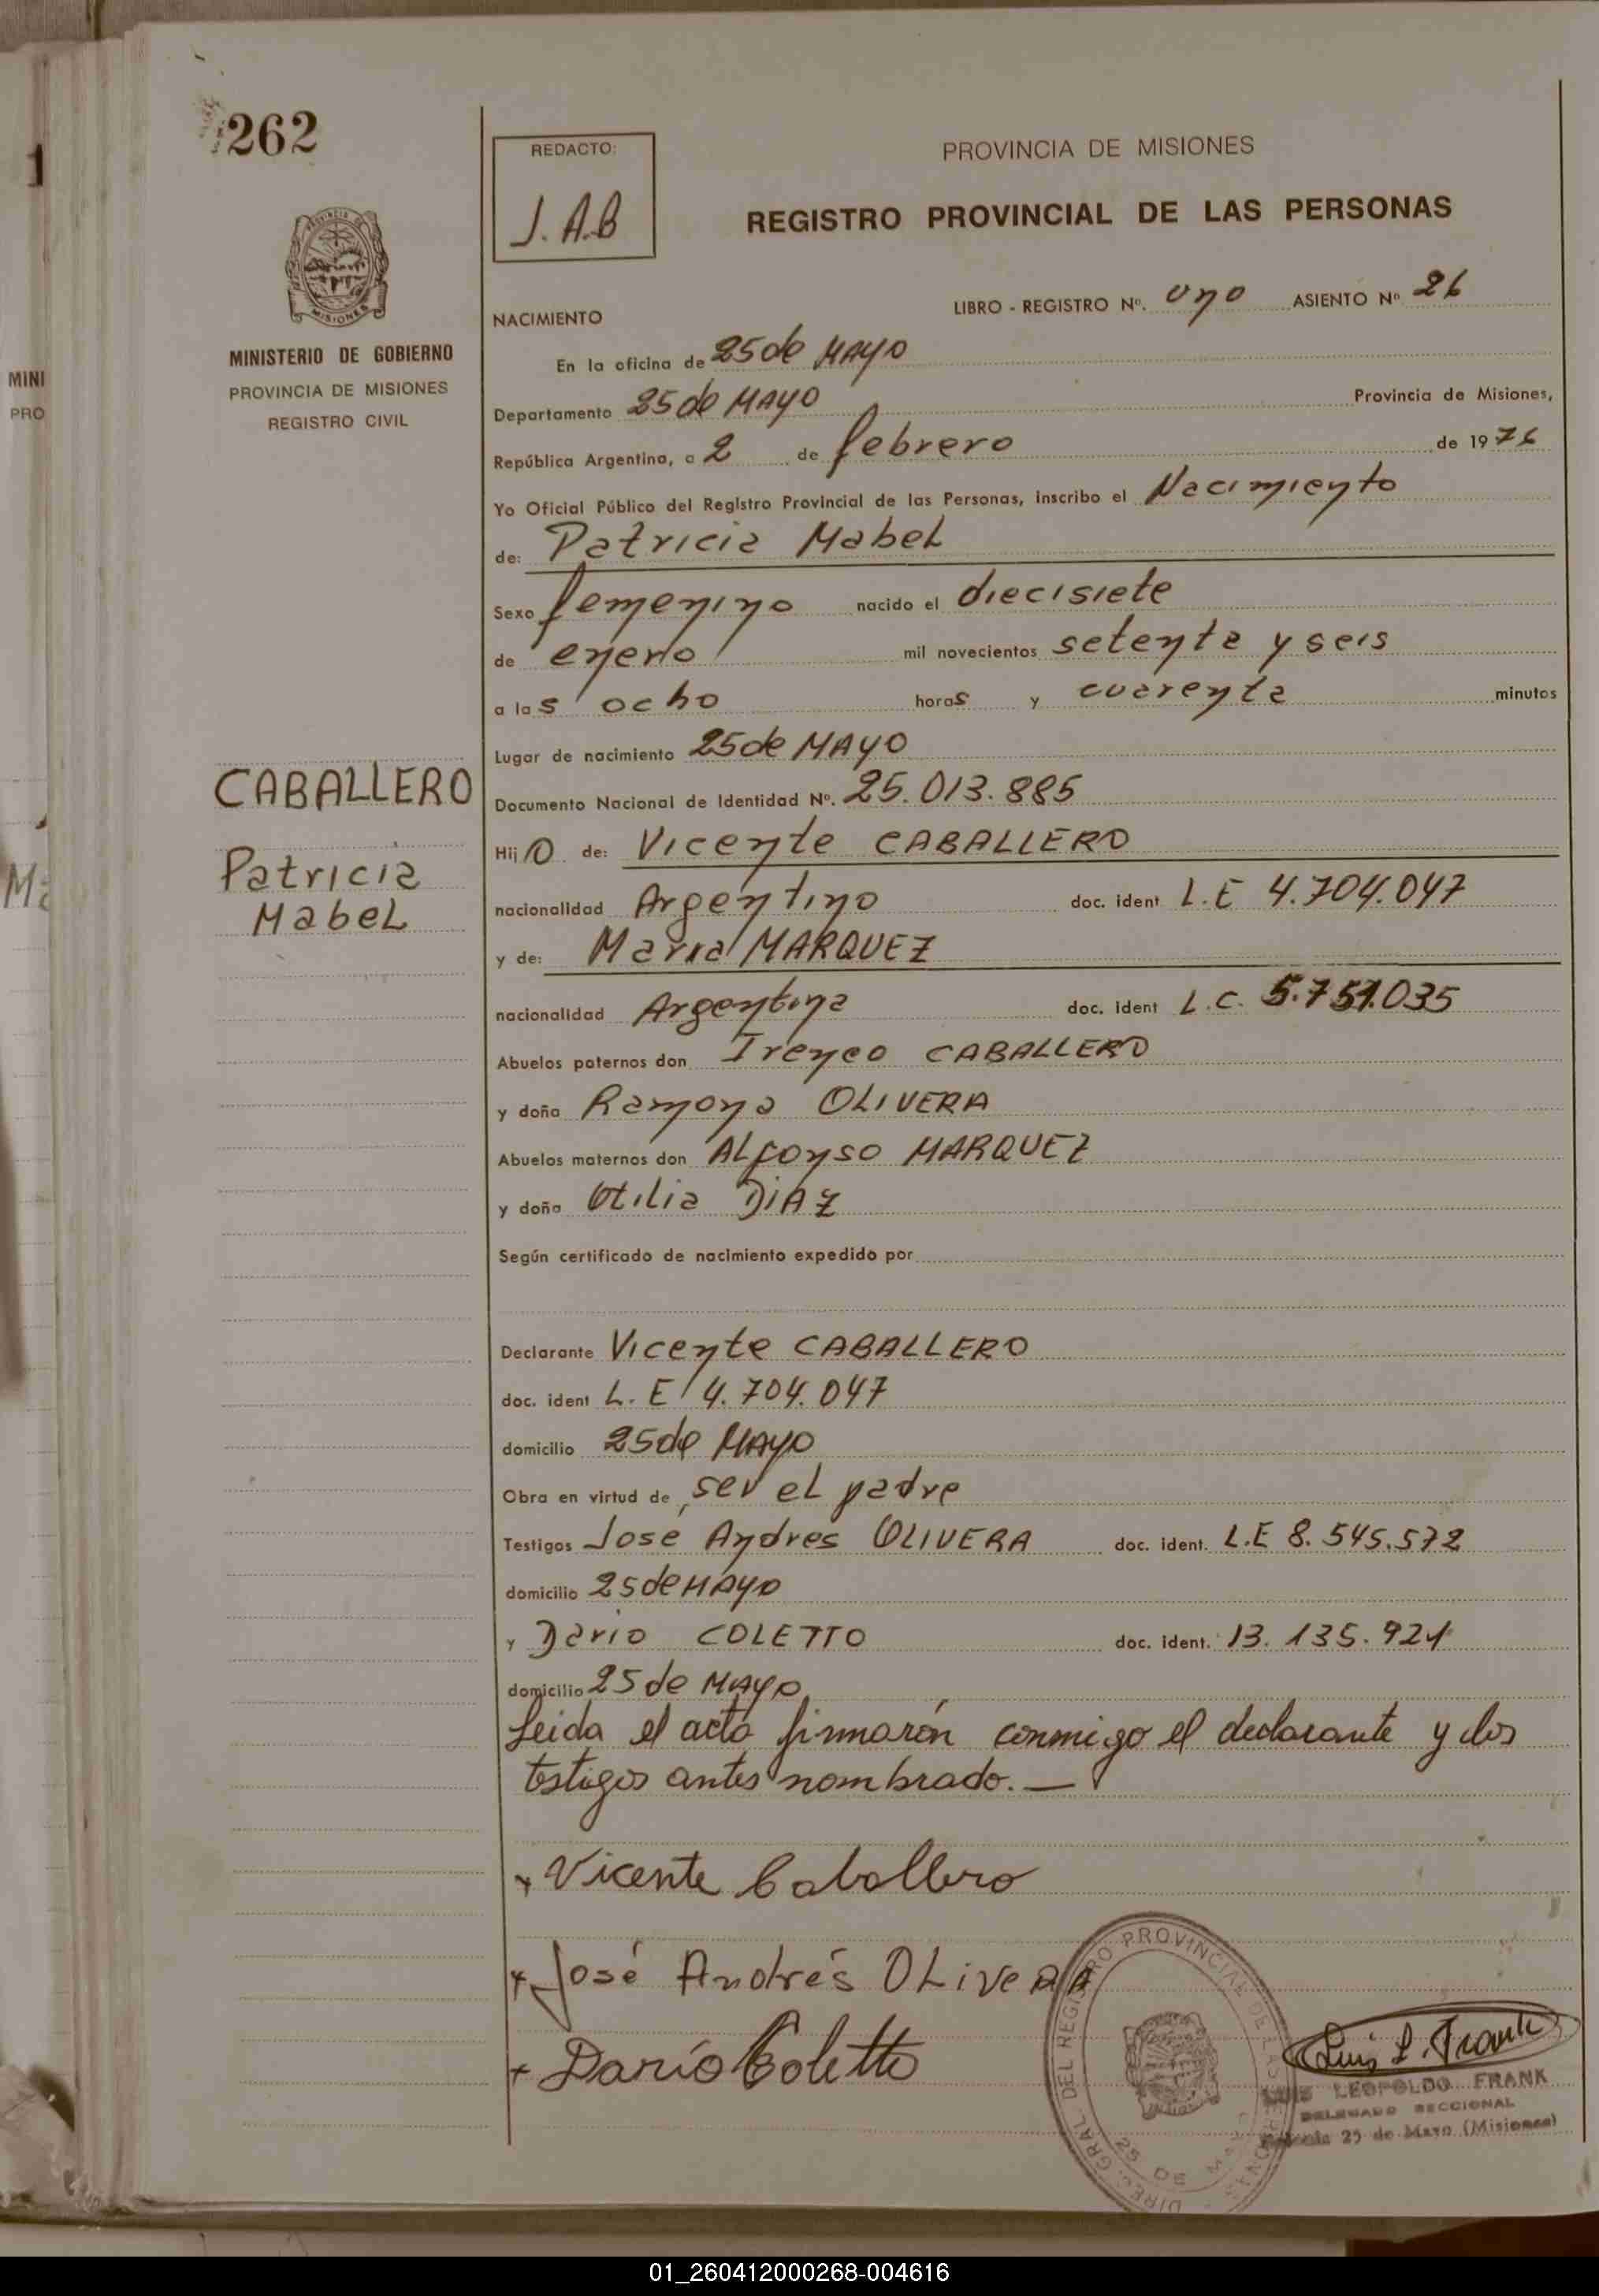 262
REDACTO:
J. A.B
PROVINCIA DE MISIONES
REGISTRO PROVINCIAL DE LAS PERSONAS
MISIONES
MINISTERIO DE GOBIERNO
PROVINCIA DE MISIONES
REGISTRO CIVIL
1
MINI
PRO
LIBRO - REGISTRO Nº. uno ASIENTO Nº 26
NACIMIENTO
En la oficina de 25 de MAYO
Departamento 25 de MAYO Provincia de Misiones,
República Argentina, a 2 de febrero de 1976
Yo Oficial Público del Registro Provincial de las Personas, inscribo el Nacimiento
de: Patricia Mabel
Sexo femenino nacido el diecisiete
de enero mil novecientos setenta y seis
a las ocho horas y cuarenta minutos
Lugar de nacimiento 25 de MAYO
CABALLERO
Patricia
Mabel
Documento Nacional de Identidad Nº. 25.013.885
Hij O de: Vicente CABALLERO
nacionalidad Argentino doc. ident L.E 4.704.047
y de: Maria MARQUEZ
nacionalidad Argentina doc. ident L.C. 5.751.035
Abuelos paternos don Ireneo CABALLERO
y doña Ramona OLIVERA
Abuelos maternos don ALfonso MARQUEZ
y doña Otilia DiAZ
Según certificado de nacimiento expedido por
Declarante Vicente CABALLERO
doc. ident L. E 4.704.047
domicilio 25 de MAYO
Obra en virtud de ser el padre
Testigos José Andres OLIVERA doc. ident. L.E 8.545.572
domicilio 25 de MAYO
y Dario COLETTO doc. ident. 13.135.921
domicilio 25 de MAYO
Leida el acta firmarón conmigo el declarante y los
testigos antes nombrado. —
x Vicente Caballero
x José Andrés OLiveRA
x Darío Coletto
DIREC. GRAL. DEL REGISTRO PROVINCIAL DE LAS PERSONAS
25 DE MAYO
Luis L. Frank
LUIS LEOPOLDO FRANK
DELEGADO SECCIONAL
Colonia 25 de Mayo (Misiones)
01_260412000268-004616